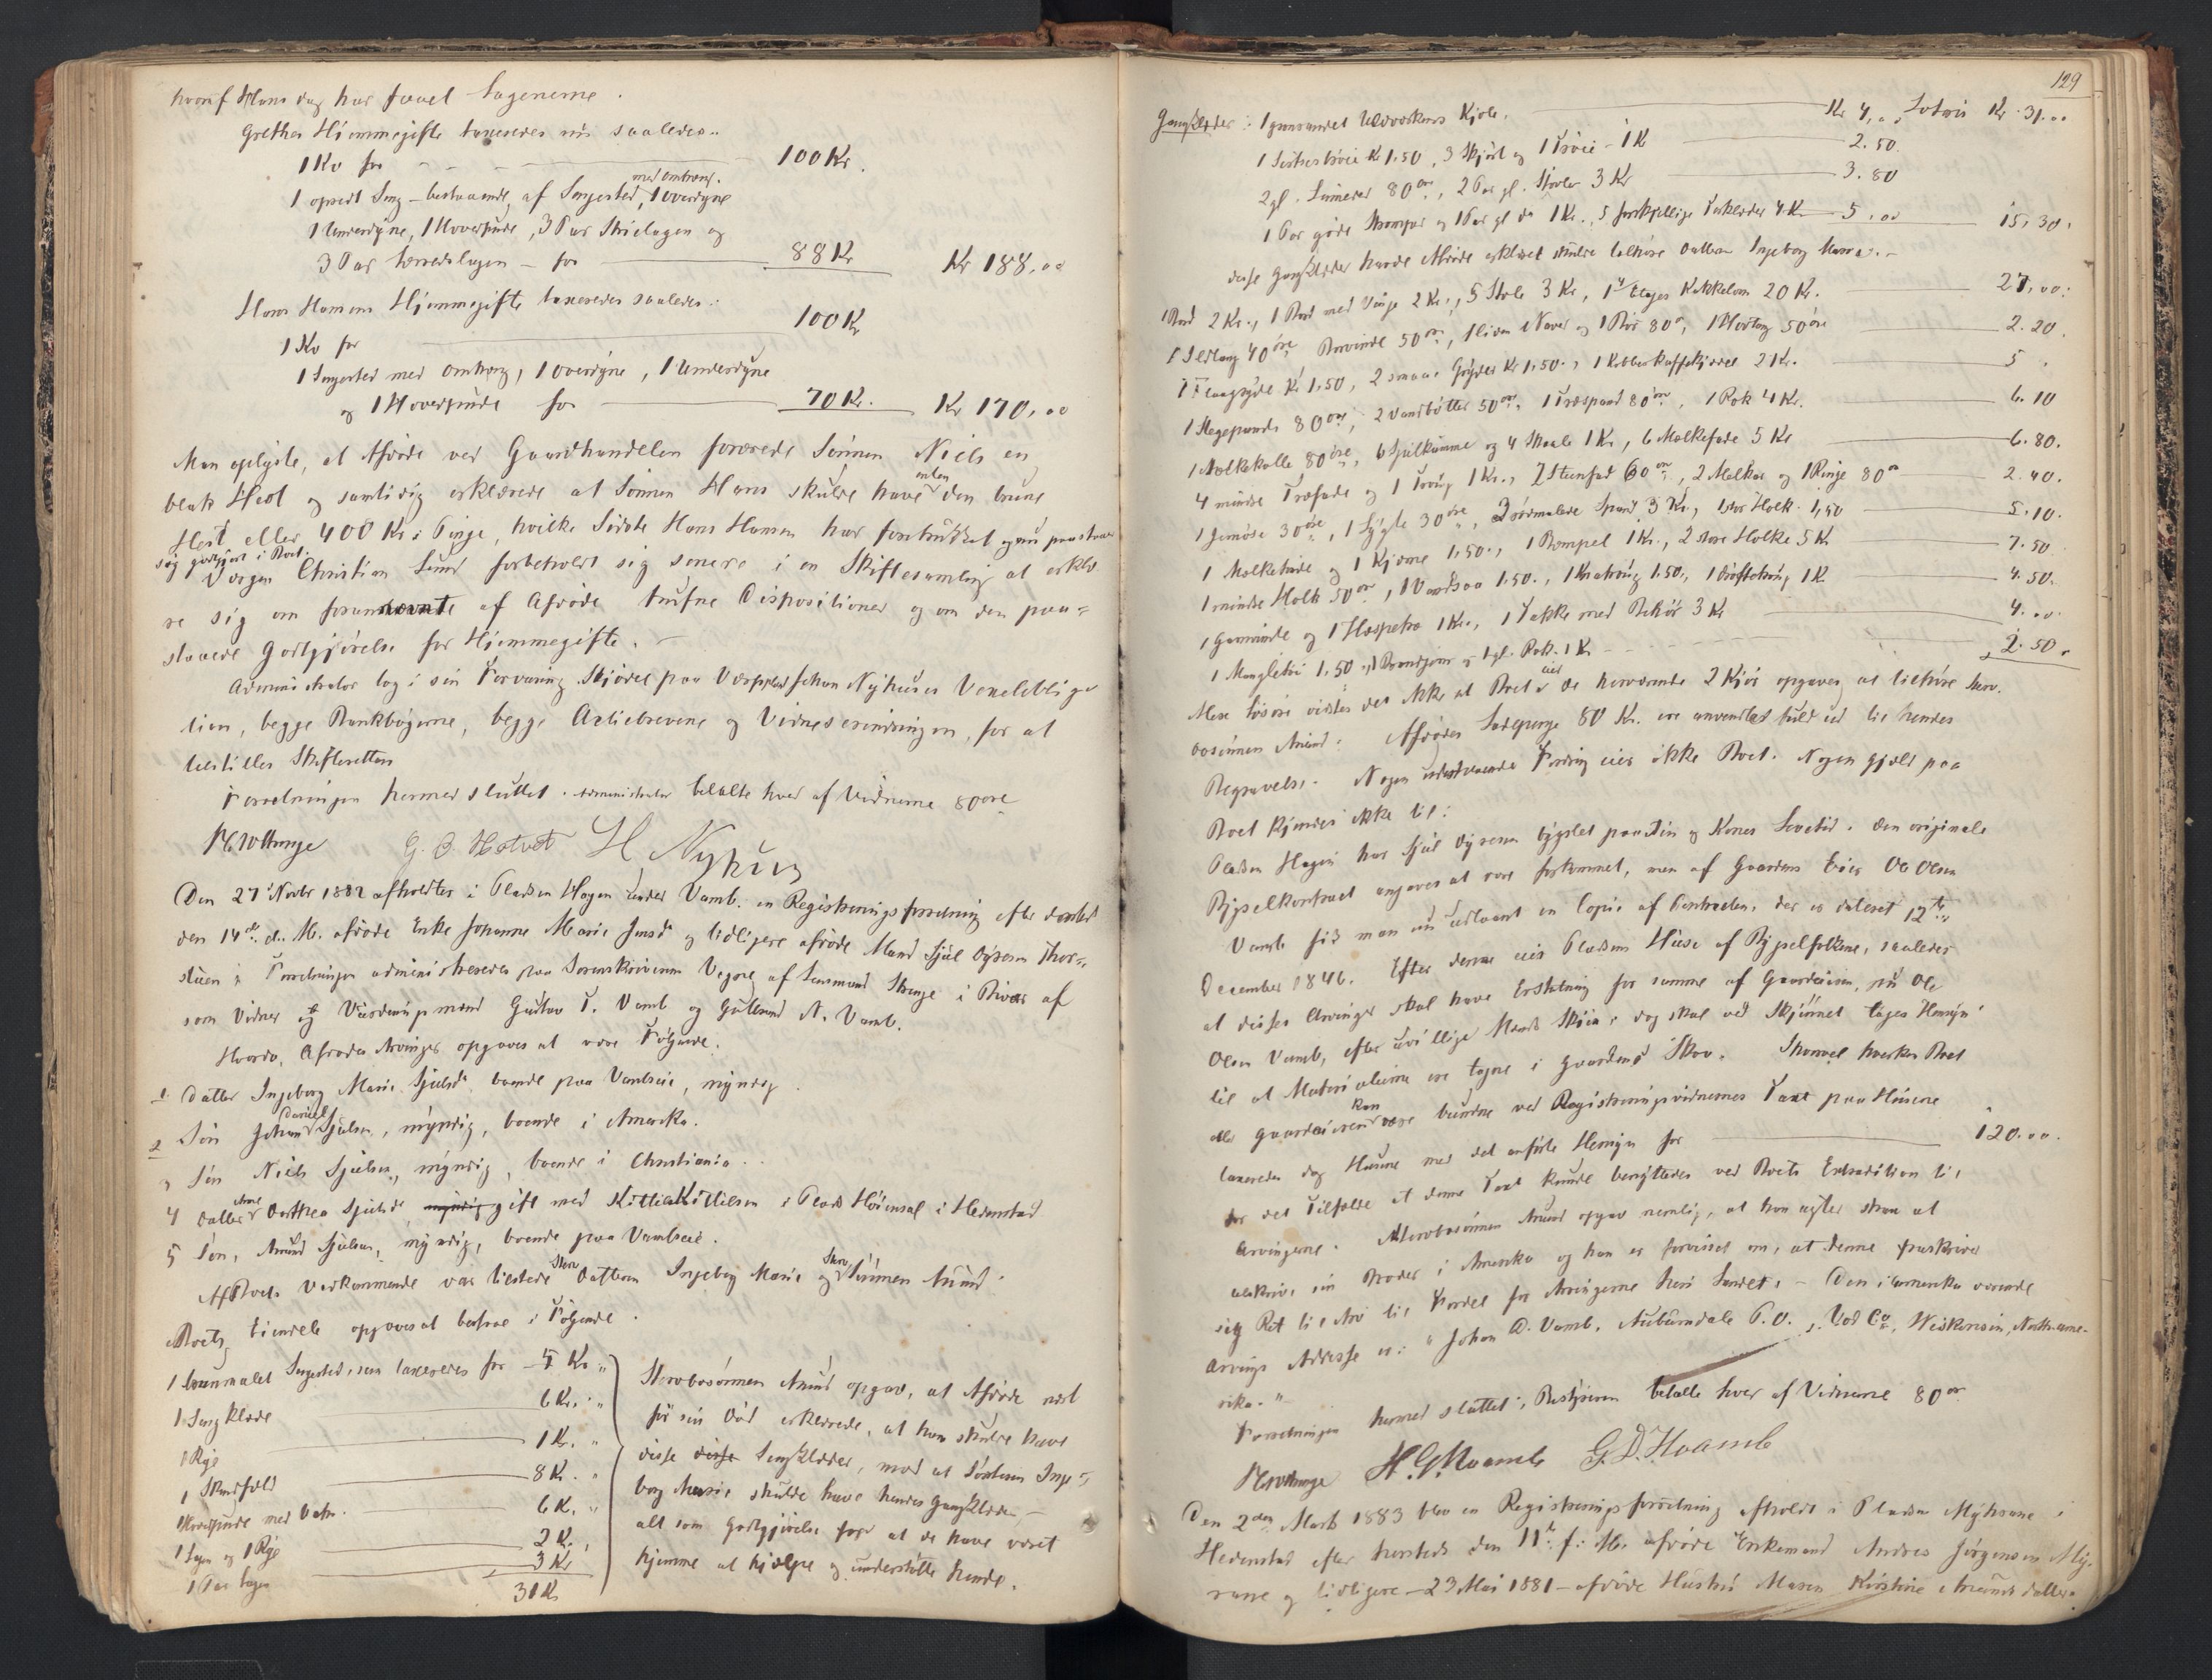 hvoraf Hans dog har faaet Lagenerne.
Grethes Hjemmegifte taxeredes nu saaledes..
1 Ko for 100 Kr.
1 opredt Seng - bestaaende af Sengested med omhæng, 1 Overdyne
1 Underdyne, 1 Hovedpude, 3 Par Strielagen og
3 Par Lærredslagen - for 88 Kr Kr 188,00
Hans Hansens Hjemmegifte taxeredes saaledes:
1 Ko for 100 Kr
1 Sengested med Omhæng, 1 Overdyne, 1 Underdyne
og 1 Hovedpude for 70 Kr. Kr 170,00
Man oplyste, at Afdøde ved Gaardhandelen forærede Sønnen Niels en
blak Hest og samtidig erklærede at Sønnen Hans skulde have enten den brune
Hest eller 400 Kr i Penge, hvilke Sidste Hans Hansen har foretrukket og nu paastaar
sig godtgjort i Boet.
Jørgen Christian Lund forbeholdt sig senere i en Skiftesamling at erklæ
re sig om forannævnte af Afdøde trufne Dispositioner og om den paa=
staaede Godtgjørelse for Hjemmegifte. -
Administrator tog i sin Forvaring Skjødet paa Vexelobliga
tion, begge Bankbøgerne, begge Actiebrevene og Vidneserindringen, for at
tilstilles Skifteretten
Forretningen hermed sluttet. Administrator betalte hver af Vidnerne 80 øre
G. B. Hotvet H Nyhus
Den 27de Novbr 1882 afholdtes i Pladsen Hagen under Vamb. en Registreringsforretning efter
den 14de d. M. afdøde Enke Johanne Marie Jensd. og tidligere afdøde Mand Sjul
Forretningen administreredes paa Sorenskriverens Vegne af Lensmand Strenge i Bivær af
som Vidner og Vurderingsmænd Gustav T. Vamb og Gulbrand N. Vamb.
Hvorda, Afdødes Arvinger opgaves at være Følgende.
1. Datter Ingeborg Marie Sjulsd. boende paa Vambseie, myndig.
2 Søn Johan Daniel Sjulsen, myndig, boende i Amerika.
3 Søn Niels Sjulsen, myndig, boende i Christiania..
4 Datter Anne Dorthea Sjulsd. myndig gift med Kittil Kittilsen i Plads i Hedenstad
5 Søn, Amund Sjulsen, myndig, boende paa Vambseie.
Af Boets Vedkommende var tilstede Datteren Ingeborg Marie og Sønnen Amund.
Boets Eiendele opgaves at bestaae i Følgende.
1 brunmalet Sengested, som taxeredes for 5 Kr "
1 Sengklæde 6 Kr. "
1 Rye 1 Kr. "
1 Skindfeld 8 Kr. "
1 Hovedpude med Vahr. 6 K. "
1 Lagen og 1 Rye 2 K.,
1 Par Lagen 3 Kr
31 Kr
Stervbosønnen Amund opgav, at Afdøde ved
før sin Død erklærede, at han skulde have
disse disse Sengklæder, mod at Søsteren Inge=
borg Marie skulde have hendes Gangklæder, -
alt som Godtgjørelse for at de have været
hjemme at hjælpe og understøtte hende.
129
Gangklæder: 1 Kjole. Kr 4,00 Kr. 31.00
1 Kr 1.50, 3 Skjørt og 1 Trøie - 1 K 2.50.
2 gl. 80 øre, 2 Par gl. Støvler 3 Kr 3.80
1 Par gode Strømper og 1 Par gl do 1 Kr., 5 forskjellige Tørklæder 4 K 5,00 15,30.
disse Gangklæder havde Afdøde erklæret skulde tilhøre Datteren Ingeborg Marie. -
1 Bord 2 Kr., 1 Bord med 2 Kr., 5 Stole 3 Kr, 1 4 Etages Kakkelovn 20 Kr. 27,00.
1 Ildtang 40 øre 50 øre, 1 liden Naver og 1 Bør 80 ø, 1 50 øre 2.20.
1 Kr 1.50, 2 smaae Gryder Kr 1.50., 1 Kobberkaffekjedel 2 Kr. 5 "
1 Stegepande 80 øre, 2 Vandbøtter 50 øre, 1 Træspand 80 øre, 1 Rok 4 Kr. 6.10
1 Melkekolle 80 øre, 6 og 4 Skaale 1 Kr, 6 Melkefade 5 Kr 6.80.
4 mindre Træfade og 1 Traug 1 Kr., 2 Steenfad 60 øre, 2 Melkar og 1 Ringe 80 ø 2.40.
1 30 øre, 1 Lygte 30 øre, 2 rødmalede Spand 3 Kr., 1 stor Holk 1,50 5.10.
1 Melkebøtte og 1 Kjerne 1.50., 1 Bompel 1 Kr., 2 store Holke 5 Kr 7.50
1 mindre Holk 50 øre, 1 1.50., 1 1.50., 1 1 K 4.50.
1 Garnvinde og 1 Hespetræ 1 Kr., 1 med Behør 3 Kr 4.00
1 Mangletræ 1.50., 1 og 1 gl. Rok 1 K 2.50.
Mere Løsøre vidstes det ikke at Boet eier de herværende 2 Kjør opgaves at tilhøre Sterv-
bosønnen Amund. Afdødes 80 Kr. ere anvendte fuldt ud til hendes
Begravelse. Nogen udestaaende Fordring eier ikke Boet. Nogen Gjæld paa
Boet kjendes ikke til.
Pladsen Hagen har Sjul bygslet paa Sin og Kones Levetid. Den originale
Bygselkontract angaves at være forkommet, men af Gaardens Eier Ole Olsen
Vamb fik man nu udlaant en Copie af Contracten, der er dateret 12te
December 1846. Efter denne eies Pladsens Huse af Bygselfolkene, saaledes
at disses Arvinger skal have Erstatning for samme af Gaardeieren, nu Ole
Olsen Vamb, efter uvillige Mænds Skjøn; dog skal ved Skjønnet tages Hensyn
til at Materialierne ere tagne i Gaardens Skov. Skjønt hverken Boet
eller Gaardeieren kan være bundne ved Registreringsvidnernes Taxt paa Husene
taxeredes dog Husene med det anførte Hensyn for 120.00.
for det Tilfælde at denne Taxt kunde benyttes ved Boets Extradition til
Arvingerne. Stervbosønnen Amund opgav nemlig, at han agter strax at
tilskrive sin Broder i Amerika og han er forvisset om, at denne fraskriver
sig Ret til Arv til Fordel for Arvingerne her i Landet. - Den i Amerika værende
Arvings Adresse er: "Johan D. Vamb, Auburndale P.O., Vod Co, Wiskonsin, Nortame-
rika."
Forretningen hermed sluttet; Bestyreren betalte hver af Vidnerne 80 ør
H. G. Hvamb G. D. Hvamb
Den 2den Marts 1883 blev en Registreringsforretning afholdt i Pladsen Myhrane i
Hedenstad efter hersteds den 11te f. M. afdøde Enkemand Andreas Jørgensen My-
rane og tidligere - 23 Mai 1881 - afdøde Hustru Maren Kirstine Amundsdatter.